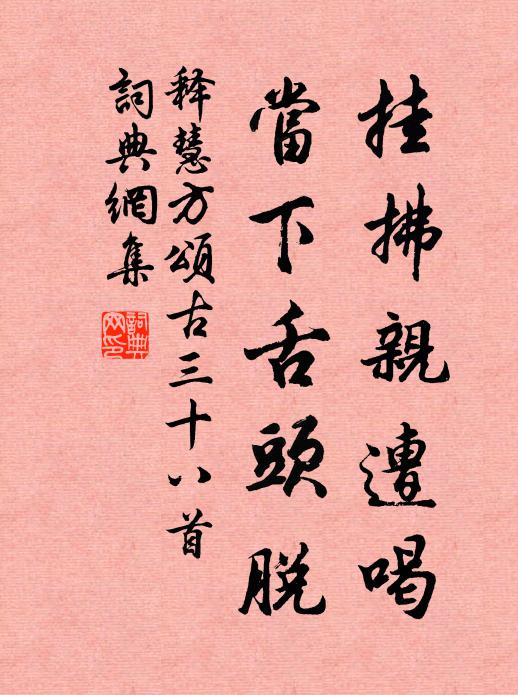 挂拂親遭喝
當下舌頭脫
释慧方頌古三十八首
詞典網集
詞典网印